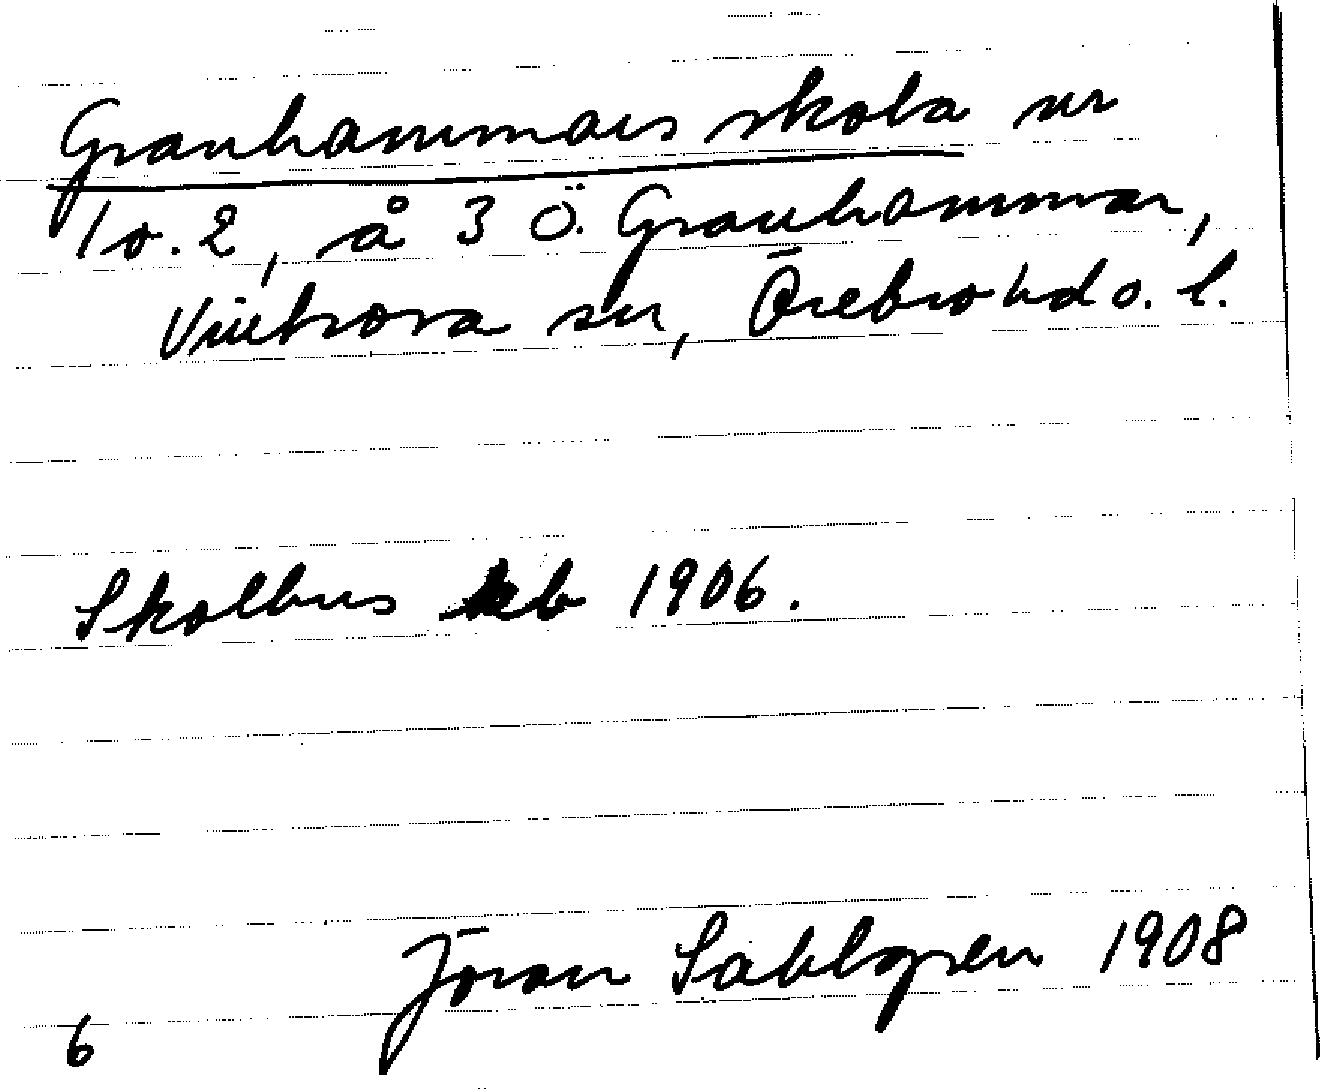 Granhammars skola nr
1 o. 2, å 3 Ö. Granhammar,
Vintrosa sn, Örebro hd o. l.
Skolhus b 1906.
Jöran Sahlgren 1908
6